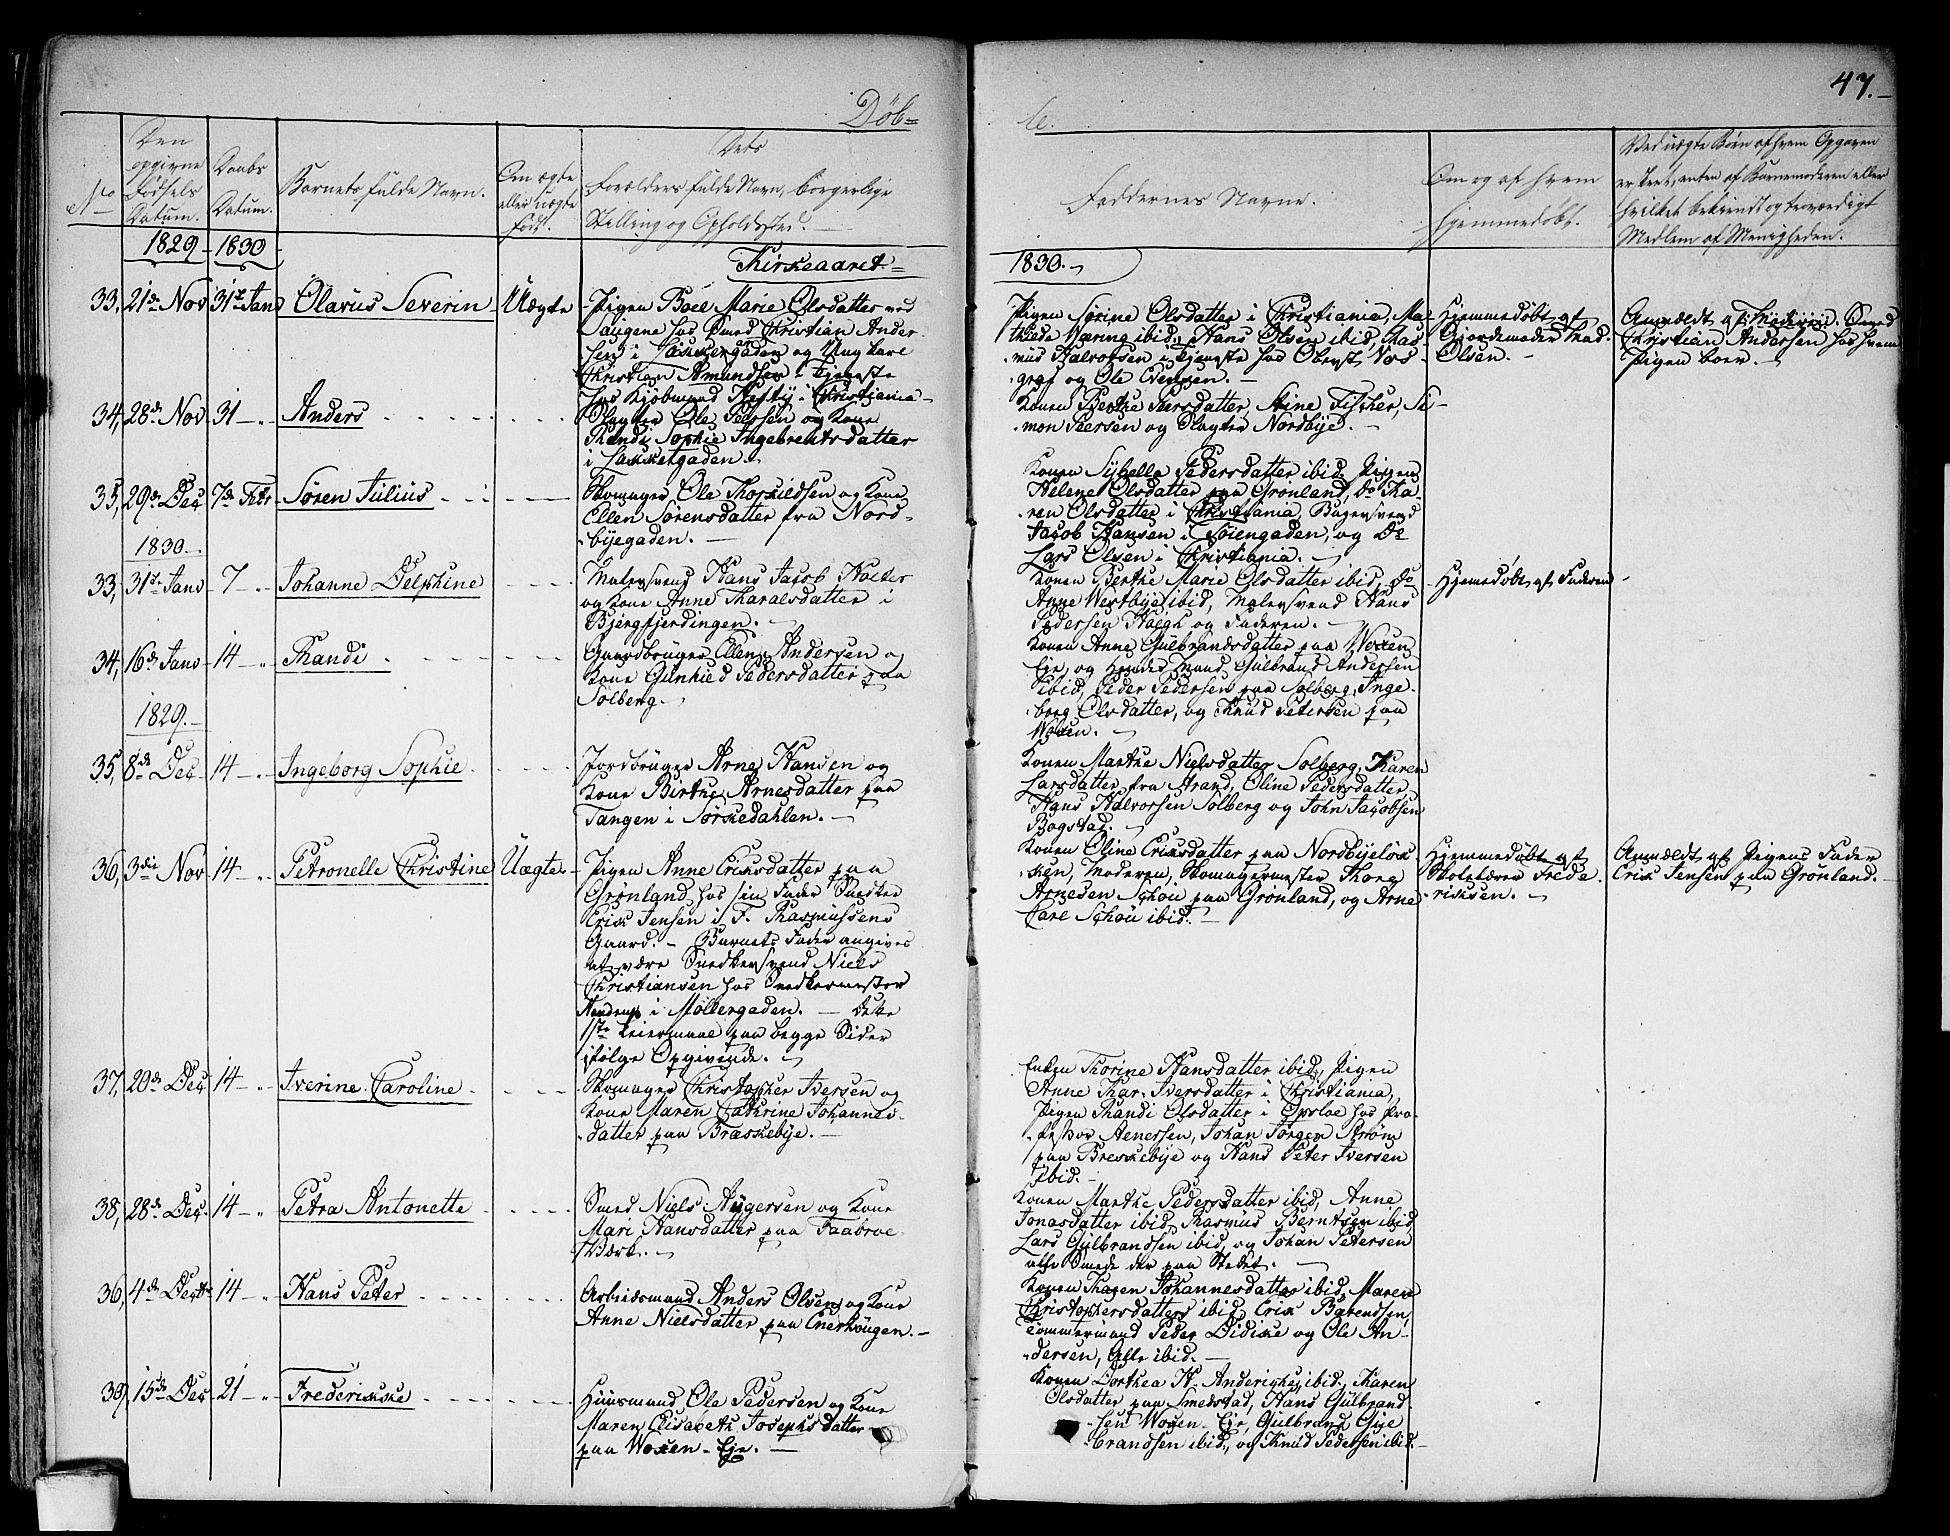 47.
Døb=
te.
No
Den
opgivne
Fødsels
Datum.
Daabs
Datum.
Barnets fulde Navn.
Om ægte
eller uægte
født.
Dets
Forældres fulde Navn, borgerlige
Stilling og Opholdssted.
Faddernes Navne.
Om og af hvem
hjemmedøbt.
Ved uægte Børn af hvem Opgaven
er skeet, enten af Barnemoderen eller
hvilket bekiendt og troværdigt
Medlem af Menigheden.
1829 - 1830
Kirkeaaret
1830.
33, 21de Nov 31te Jan Olavus Severin Uægte
Pigen Boel Marie Olsdatter ved
Christian Ander
sen i Lakkergaden og Ung Karl
Christian Amundsen i Tjeneste
hos Kjøbmand Hefty i Christiania
Pigen Sørine Olsdatter i Christiania, Ma-
thilde Næring ibid, Hans Olsen ibid, Ras-
mus Halvorsen i Tjeneste hos Oberst
og Ole Evensen.
Hjemmedøbt af
Gjordemoder Mad.
Olsen.
Anmeldt af Smed
Christian Andersen hos hvem
Pigen boer.
34, 28de Nov 31 - " Anders
Slagter Ole Pedersen og Kone
Randi Sophie Ingebretsdatter
i Lakkergaden.
Konen Berthe Peersdatter, Stine Fischer, Si-
mon Peersen og Slagter Nordbye.
35, 29de Dec 7de Febr Søren Julius
Skomager Ole Thorkildsen og Kone
Ellen Sørensdatter fra Nord-
byegaden.
Konen Sybella Pedersdatter ibid, Pigen
Helene Olsdatter paa Grønland, do Ka-
ren Olsdatter i Christiania, Bagersvend
Jacob Hansen i Søiengaden, og Do
Lars Olsen i Christiania.
1830.
33, 31te Janv 7 - " Johanne Delphine
Malersvend Hans Jacob Holter
og Kone Anne Tharalsdatter i
Bjergfjerdingen.
Konen Berthe Marie Olsdatter ibid, do
Anne Westbye ibid, Malersvend Hans
Pedersen og Faderen.
Hjemmedøbt af Faderen
34, 16de Janv 14 - " Randi
Gaardbruger Ellend Andersen og
Kone Gunhild Pedersdatter paa
Solberg.
Konen Anne Gulbrandsdatter paa Woxen
Eje, og hendes Mand Gulbrand Andersen
ibid, Peder Pedersen paa Solberg, Inge-
borg Olsdatter, og Knud Petersen paa
Woxen.
1829.
35, 8de Dec 14 - " Ingeborg Sophie
Jordbruger Arne Hansen og
Kone Birthe Arnesdatter paa
Tangen i Sørkedahlen.
Konen Marthe Nielsdatter Solberg, Karen
Larsdatter fra Strand, Oline Pedersdatter,
Hans Halvorsen Solberg og John Jacobsen
Bogstad.
36, 3die Nov 14 - " Petronelle Christine Uægte
Pigen Anne Eriksdatter paa
Grønland, hos sin Fader Snedker
Erik Jensen i F. Rasmussens
Gaard. - Barnets Fader angives
at være Snedkersvend Niels
Christiansen hos Snedkermester
i Møllergaden. - Dette
1ste Leiermaal paa begge Sider
ifølge Opgivende.
Konen Oline Eriksdatter paa Nordbyeløk-
ken, Moderen, Skomagermester Thore
Arnesen Schou paa Grønland, og Arne
Carl Schou ibid.
Hjemmedøbt af
Skolelærer Frede
riksen.
Anmeldt af Pigens Fader
Erik Jensen paa Grønland.
37, 20de Dec 14 - " Iverine Caroline
Skomager Christopher Iversen og
Kone Maren Cathrine Johannes-
datter paa Briskebye.
Enken Thorine Hansdatter ibid, Pigen
Anne Kar. Iversdatter i Christiania,
Pigen Randi Olsdatter i Opsloe hos Pro-
fessor Aenessen, Johan Jørgen Strøm
paa Breskebye og Hans Peter Iversen
ibid.
38, 28de Dec 14 - " Petra Antonette
Smed Niels Aagersen og Kone
Mari Hansdatter paa Faabroe
Værk.
Konen Marthe Pedersdatter ibid, Anne
Jonasdatter ibid, Rasmus Berntsen ibid
Lars Gulbrandsen ibid, og Johan Petersen
alle Smede der paa Stedet.
36, 4de Dec 14 - " Hans Peter
Arbeidsmand Anders Olsen og Kone
Anne Nielsdatter paa Enerhougen.
Konen Johannesdatter ibid, Maren
Christophersdatter ibid, Erik Barendsen,
Tømmermand Peder Didike og Ole An-
dersen, Alle ibid.
39, 15de Dec 21 - " Frederikke
Huusmand Ole Pedersen og Kone
Maren Elisabeth Josephsdatter
paa Woxen-Eje.
Konen Dorthea H. ibid, Karen
Olsdatter paa Smedstad, Hans Gulbrand-
sen Woxen-Eje, Gulbrand Gul-
brandsen ibid, og Knud Pedersen ibid.